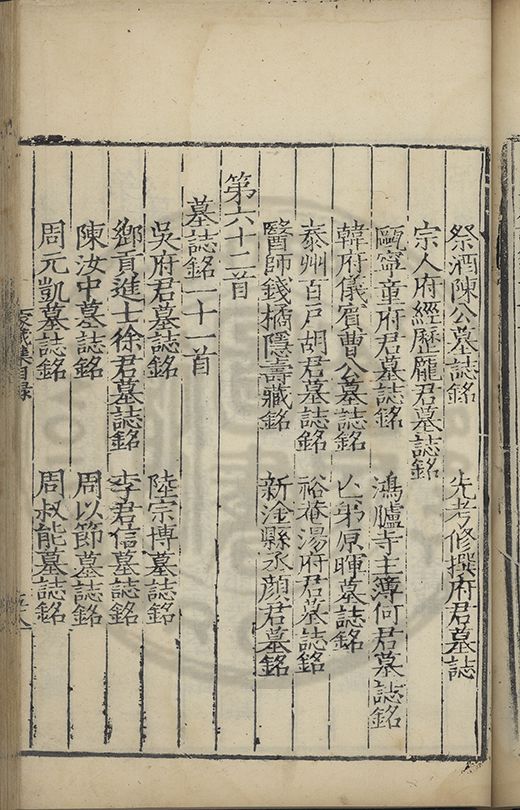 祭酒陳公墓誌銘　先考修撰府君墓誌
宗人府經歷龐君墓誌銘
甌寧童府君墓誌銘　鴻臚寺主簿何君墓誌銘
韓府儀賓曹公墓誌銘　亾弟原暉墓誌銘
泰州百戶胡君墓誌銘　裕菴湯府君墓誌銘
醫師錢橘隱壽藏銘　新淦縣丞顏君墓銘
第六十二首
墓誌銘二十一首
吳府君墓誌銘　陸宗博墓誌銘
鄉貢進士徐君墓誌銘　李君信墓誌銘
陳汝中墓誌銘　周以節墓誌銘
周元凱墓誌銘　周叔能墓誌銘
家藏集目錄